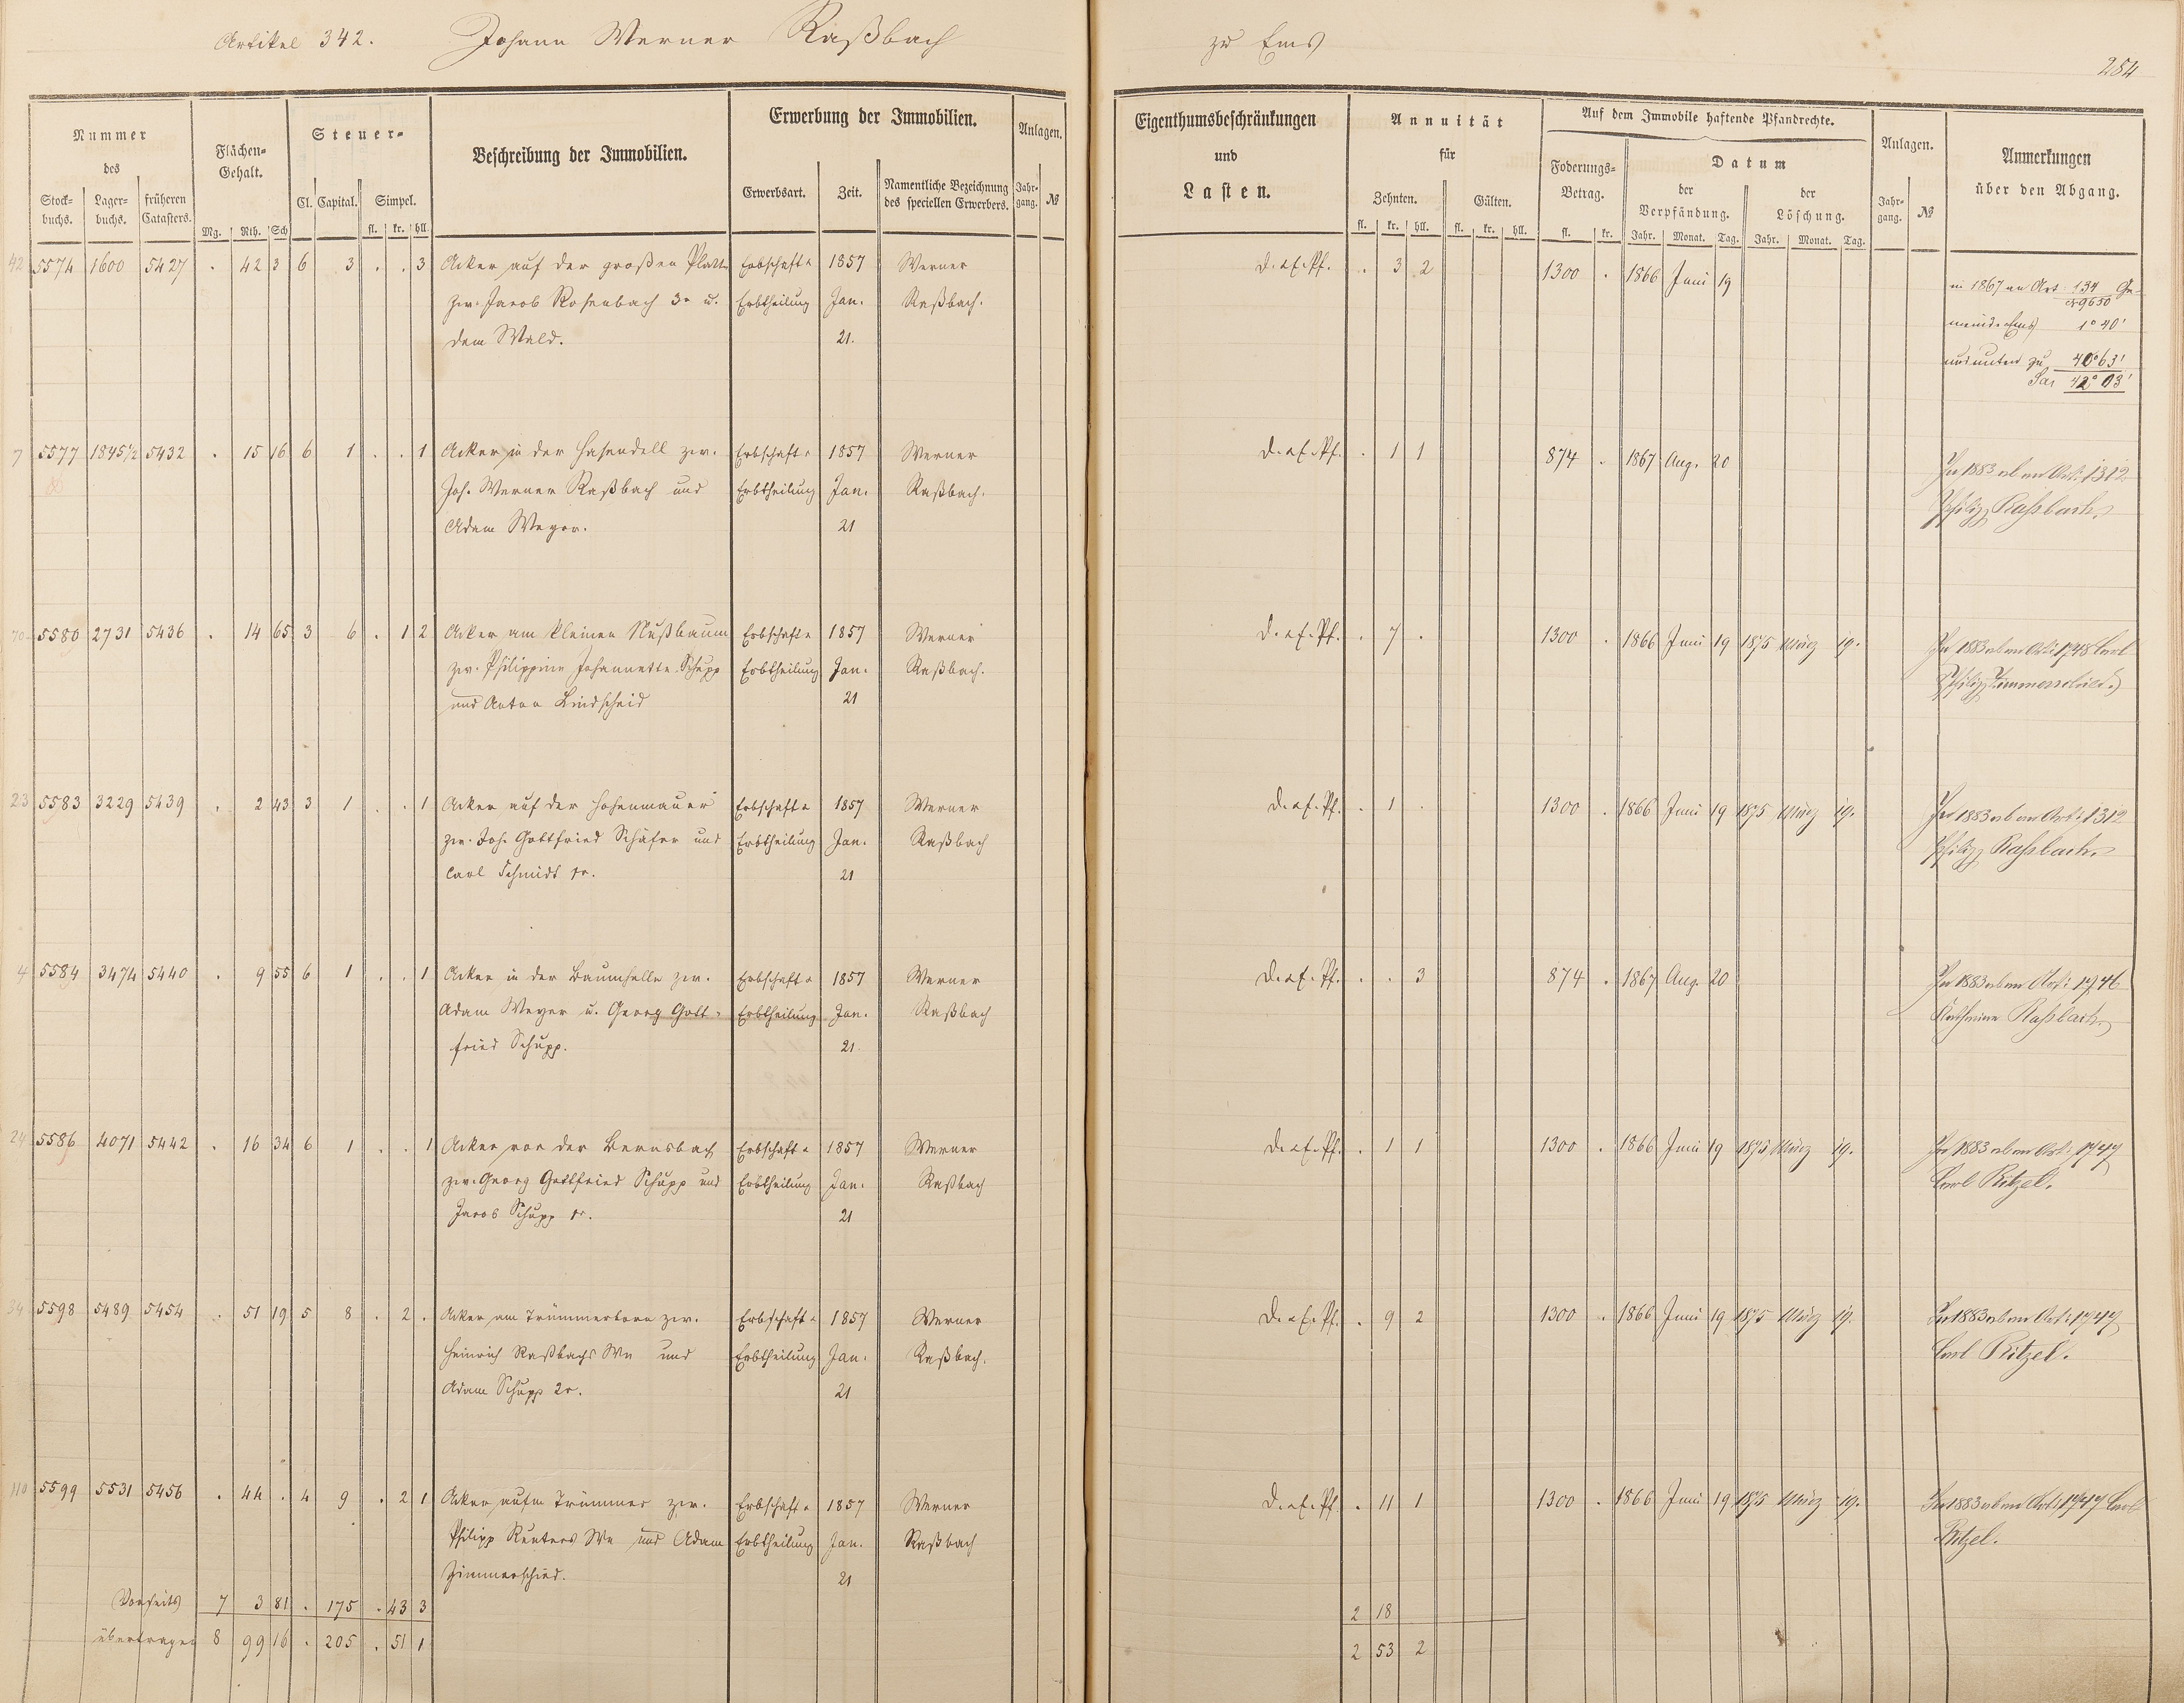 Artikel 342. Johann Werner Raßbach zu Ems
284
Nummer des
Stock-buchs. Lager-buchs. früheren Catasters.
Flächen-Gehalt.
Mg. Rth. Sch
Steuer-
Cl. Capital. Simpel.
fl. kr. hll.
Beschreibung der Immobilien.
Erwerbung der Immobilien.
Erwerbsart. Zeit. Namentliche Bezeichnung des speciellen Erwerbers.
Anlagen.
Jahr-gang. №
Eigenthumsbeschränkungen und Lasten.
Annuität für
Zehnten. Gülten.
fl. kr. hll. fl. kr. hll.
Auf dem Immobile haftende Pfandrechte.
Foderungs-Betrag.
fl. kr.
Datum
der Verpfändung. der Löschung.
Jahr. Monat. Tag. Jahr. Monat. Tag.
Anlagen.
Jahr-gang. №
Anmerkungen über den Abgang.
42 5574 1600 5427 . 42 3 6 3 . . 3 Acker auf der großen Platte Erbschaft u. 1857 Werner D. a. E. Pf. . 3 2 1300 . 1866 Juni 19
zw. Jacob Rosenbach 3r u. Erbtheilung Jan. Raßbach. in 1867 an Art 134 Ge-
9650
dem Wald. 21. meinde Ems 1° 40'
40° 63'
Sa. 42° 03'
7 5577 1845½ 5432 . 15 16 6 1 . . 1 Acker in der Hasendell zw. Erbschaft u. 1857 Werner D. a. E. Pf. . 1 1 874 . 1867 Aug. 20 In 1883 ab an Art: 1312
Joh. Werner Raßbach und Erbtheilung Jan. Raßbach. Philipp Raßbach.
Adam Weyer. 21
70 5580 2731 5436 . 14 65 3 6 . 1 2 Acker am kleinen Nußbaum Erbschaft u. 1857 Werner D. a. E. Pf. . 7 . 1300 . 1866 Juni 19 1875 März 19. In 1883 ab an Art: 1748 Carl
zw. Philippine Johannette Schupp Erbtheilung Jan. Raßbach. Philipp Zimmerschied.
und Anton Lindscheid 21
23 5583 3229 5439 . 2 43 3 1 . . 1 Acker auf der Hohenmauer Erbschaft u. 1857 Werner D. a. E. Pf. . 1 . 1300 . 1866 Juni 19 1875 März 19. In 1883 ab an Art: 1312
zw. Joh. Gottfried Schäfer und Erbtheilung Jan. Raßbach Philipp Raßbach.
Carl Schmidt 1r. 21
4 5584 3474 5440 . 9 55 6 1 . . 1 Acker in der Baumhelle zw. Erbschaft u. 1857 Werner D. a. E. Pf. . . 3 874 . 1867 Aug. 20 In 1883 ab an Art: 1746
Adam Weyer u. Georg Gott- Erbtheilung Jan. Raßbach Katharina Raßbach.
fried Schupp. 21
24 5586 4071 5442 . 16 34 6 1 . . 1 Acker vor der Bernsbach Erbschaft u. 1857 Werner D. a. E. Pf. . 1 1 1300 . 1866 Juni 19 1875 März 19. In 1883 ab an Art: 1747
zw. Georg Gottfried Schupp und Erbtheilung Jan. Raßbach Carl Ritzel.
Jacob Schupp 1r. 21
34 5598 5489 5454 . 51 19 5 8 . 2 . Acker am Trümmerborn zw. Erbschaft u. 1857 Werner D. a. E. Pf. . 9 2 1300 . 1866 Juni 19 1875 März 19. In 1883 ab an Art: 1747
Heinrich Raßbachs We und Erbtheilung Jan. Raßbach. Carl Ritzel.
Adam Schupp 2r. 21
110 5599 5531 5456 . 44 . 4 9 . 2 1 Acker aufm Trümmer zw. Erbschaft u. 1857 Werner D. a. E. Pf. . 11 1 1300 . 1866 Juni 19 1875 März 19. In 1883 ab an Art: 1747 Carl
Philipp Reuters We und Adam Erbtheilung Jan. Raßbach Ritzel.
Zimmerschied. 21
Vorseits 7 3 81 . 175 . 43 3 2 18
übertragen 8 99 16 . 205 . 51 1 2 53 2